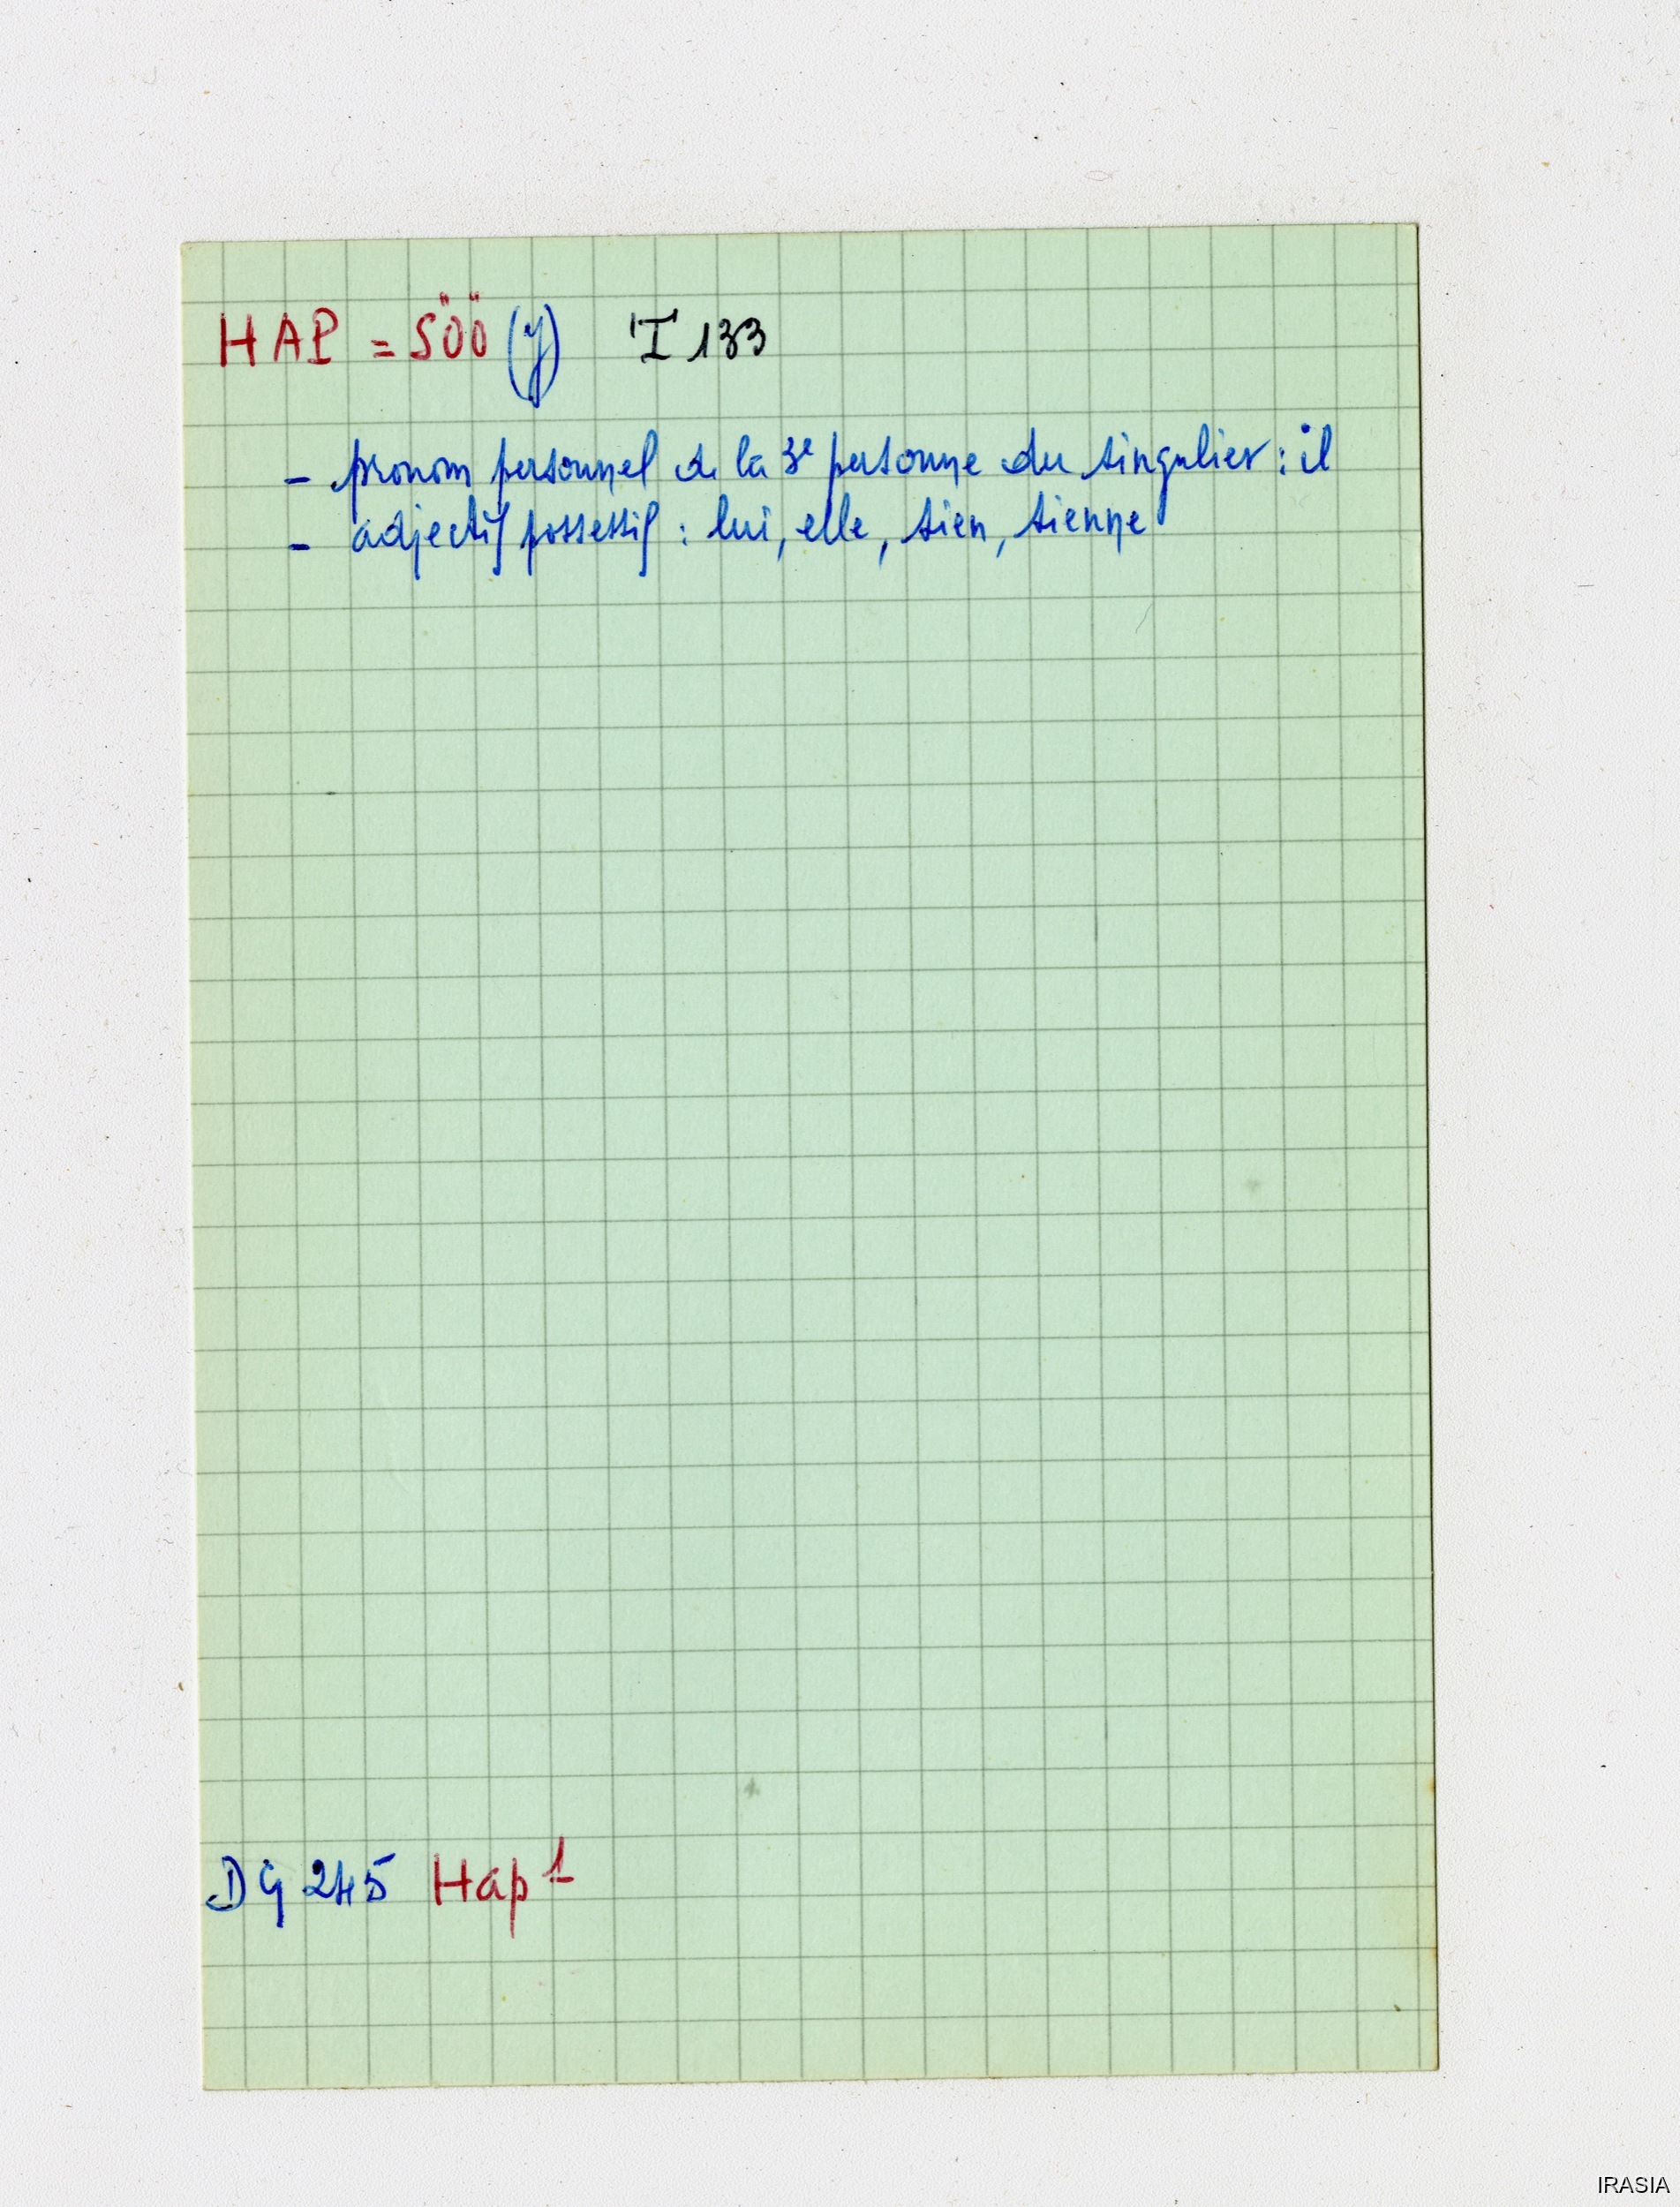 HAP = SÖÖ (y) I 133
- pronom personnel de la 3e personne du singulier : il
- adjectif possessif : lui, elle, sien, sienne
DG 245 Hap 1
IRASIA